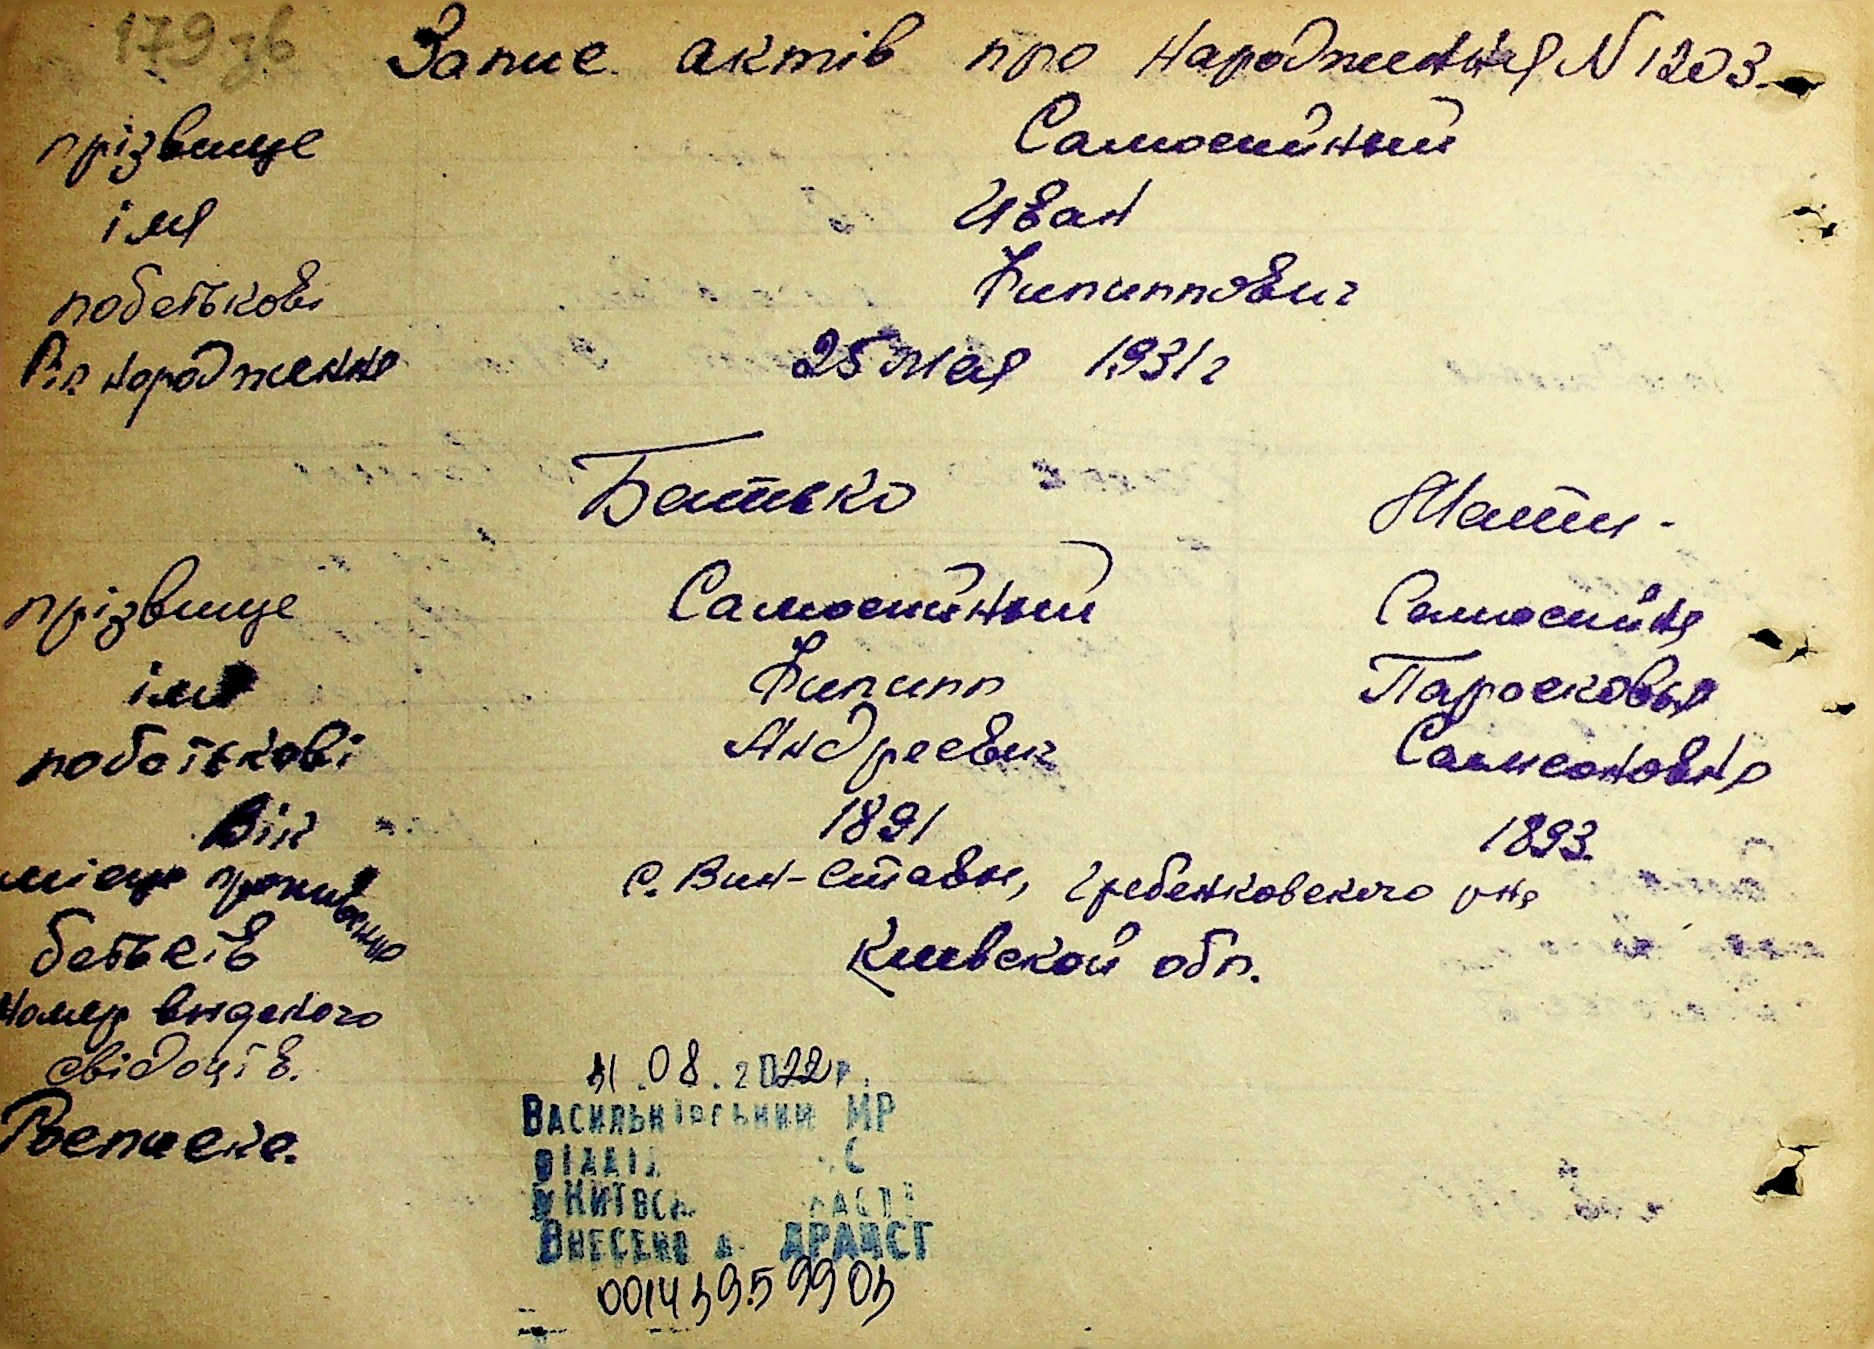 179 зв
Запис актів про народження N 1203
прізвище Самостийный
імя Иван
побатькові Филиппович
Р.п. народження 25 мая 1931 г
Батько Мати -
прізвище Самостийный Самостийня
імя Филипп Парасковья
побатькові Андреевич Самсоновна
Вік 1891 1893
місце проживання с. Вин-Ставы, Гребенковского р-на
батьків Киевской обл.
Номер виданого
свідоцтв.
Росписка.
08.2022 р.
Васильківський МР
відділ С
у Київс
Внесено в ДРАЦСГ